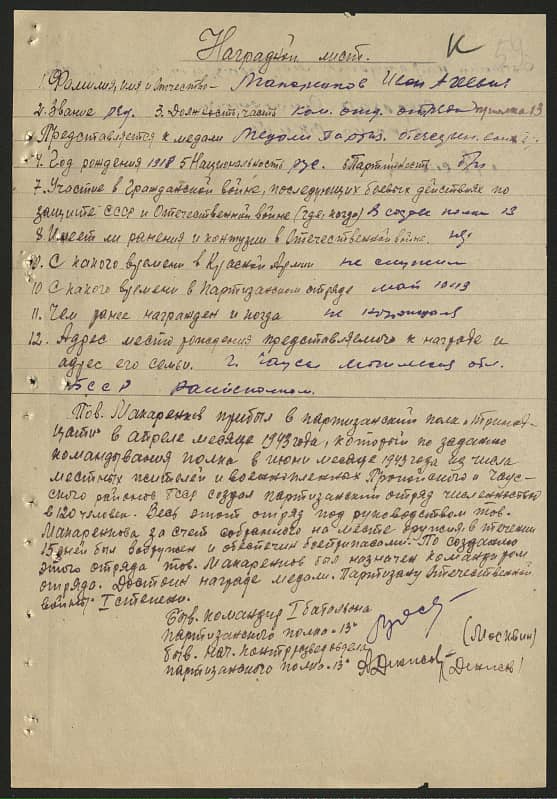 Наградной лист.
К
1. Фамилия, имя и отчество - Макаренков Иван
2. Звание ряд. 3. Должность, часть ком. отр. полка 13
Представляется к медали Медали Партиз. Отечествен.
4. Год рождения 1918 5 Национальность рус. 6 Партийность б/п
7. Участие в Гражданской войне, последующих боевых действиях по
защите СССР и Отечественной войне (где, когда) в полка 13
8. Имеет ли ранения и контузии в Отечественной войне. нет
9. С какого времени в Красной Армии не служил
10 С какого времени в Партизанском отряде май 1943
11. Чем ранее награжден и когда не награждался
12. Адрес место рождения представляемого к награде и
адрес его семьи. г. Чаусы Могилевская обл.
БССР Райисполком.
Тов. Макаренков прибыл в партизанский полк „Тринад-
цать" в апреле месяце 1943 года, который по заданию
командования полка в июни месяце 1943 года из числа
местных жителей и военнопленных Пропойского и Чаус-
ского районов БССР создал партизанский отряд численностью
в 120 человек. Весь этот отряд под руководством тов.
Макаренкова за счет собранного на месте оружия, в течении
15 дней был вооружен и обеспечен боеприпасами. По созданию
этого отряда тов. Макаренков был назначен командиром
отряда. Достоин награде медали „Партизану Отечественной
войны" I степени.
Быв. командир I батальона
партизанского полка „13"
(Москвин)
быв. нач. контрразведотдела
партизанского полка „13" Денисов (Денисов)